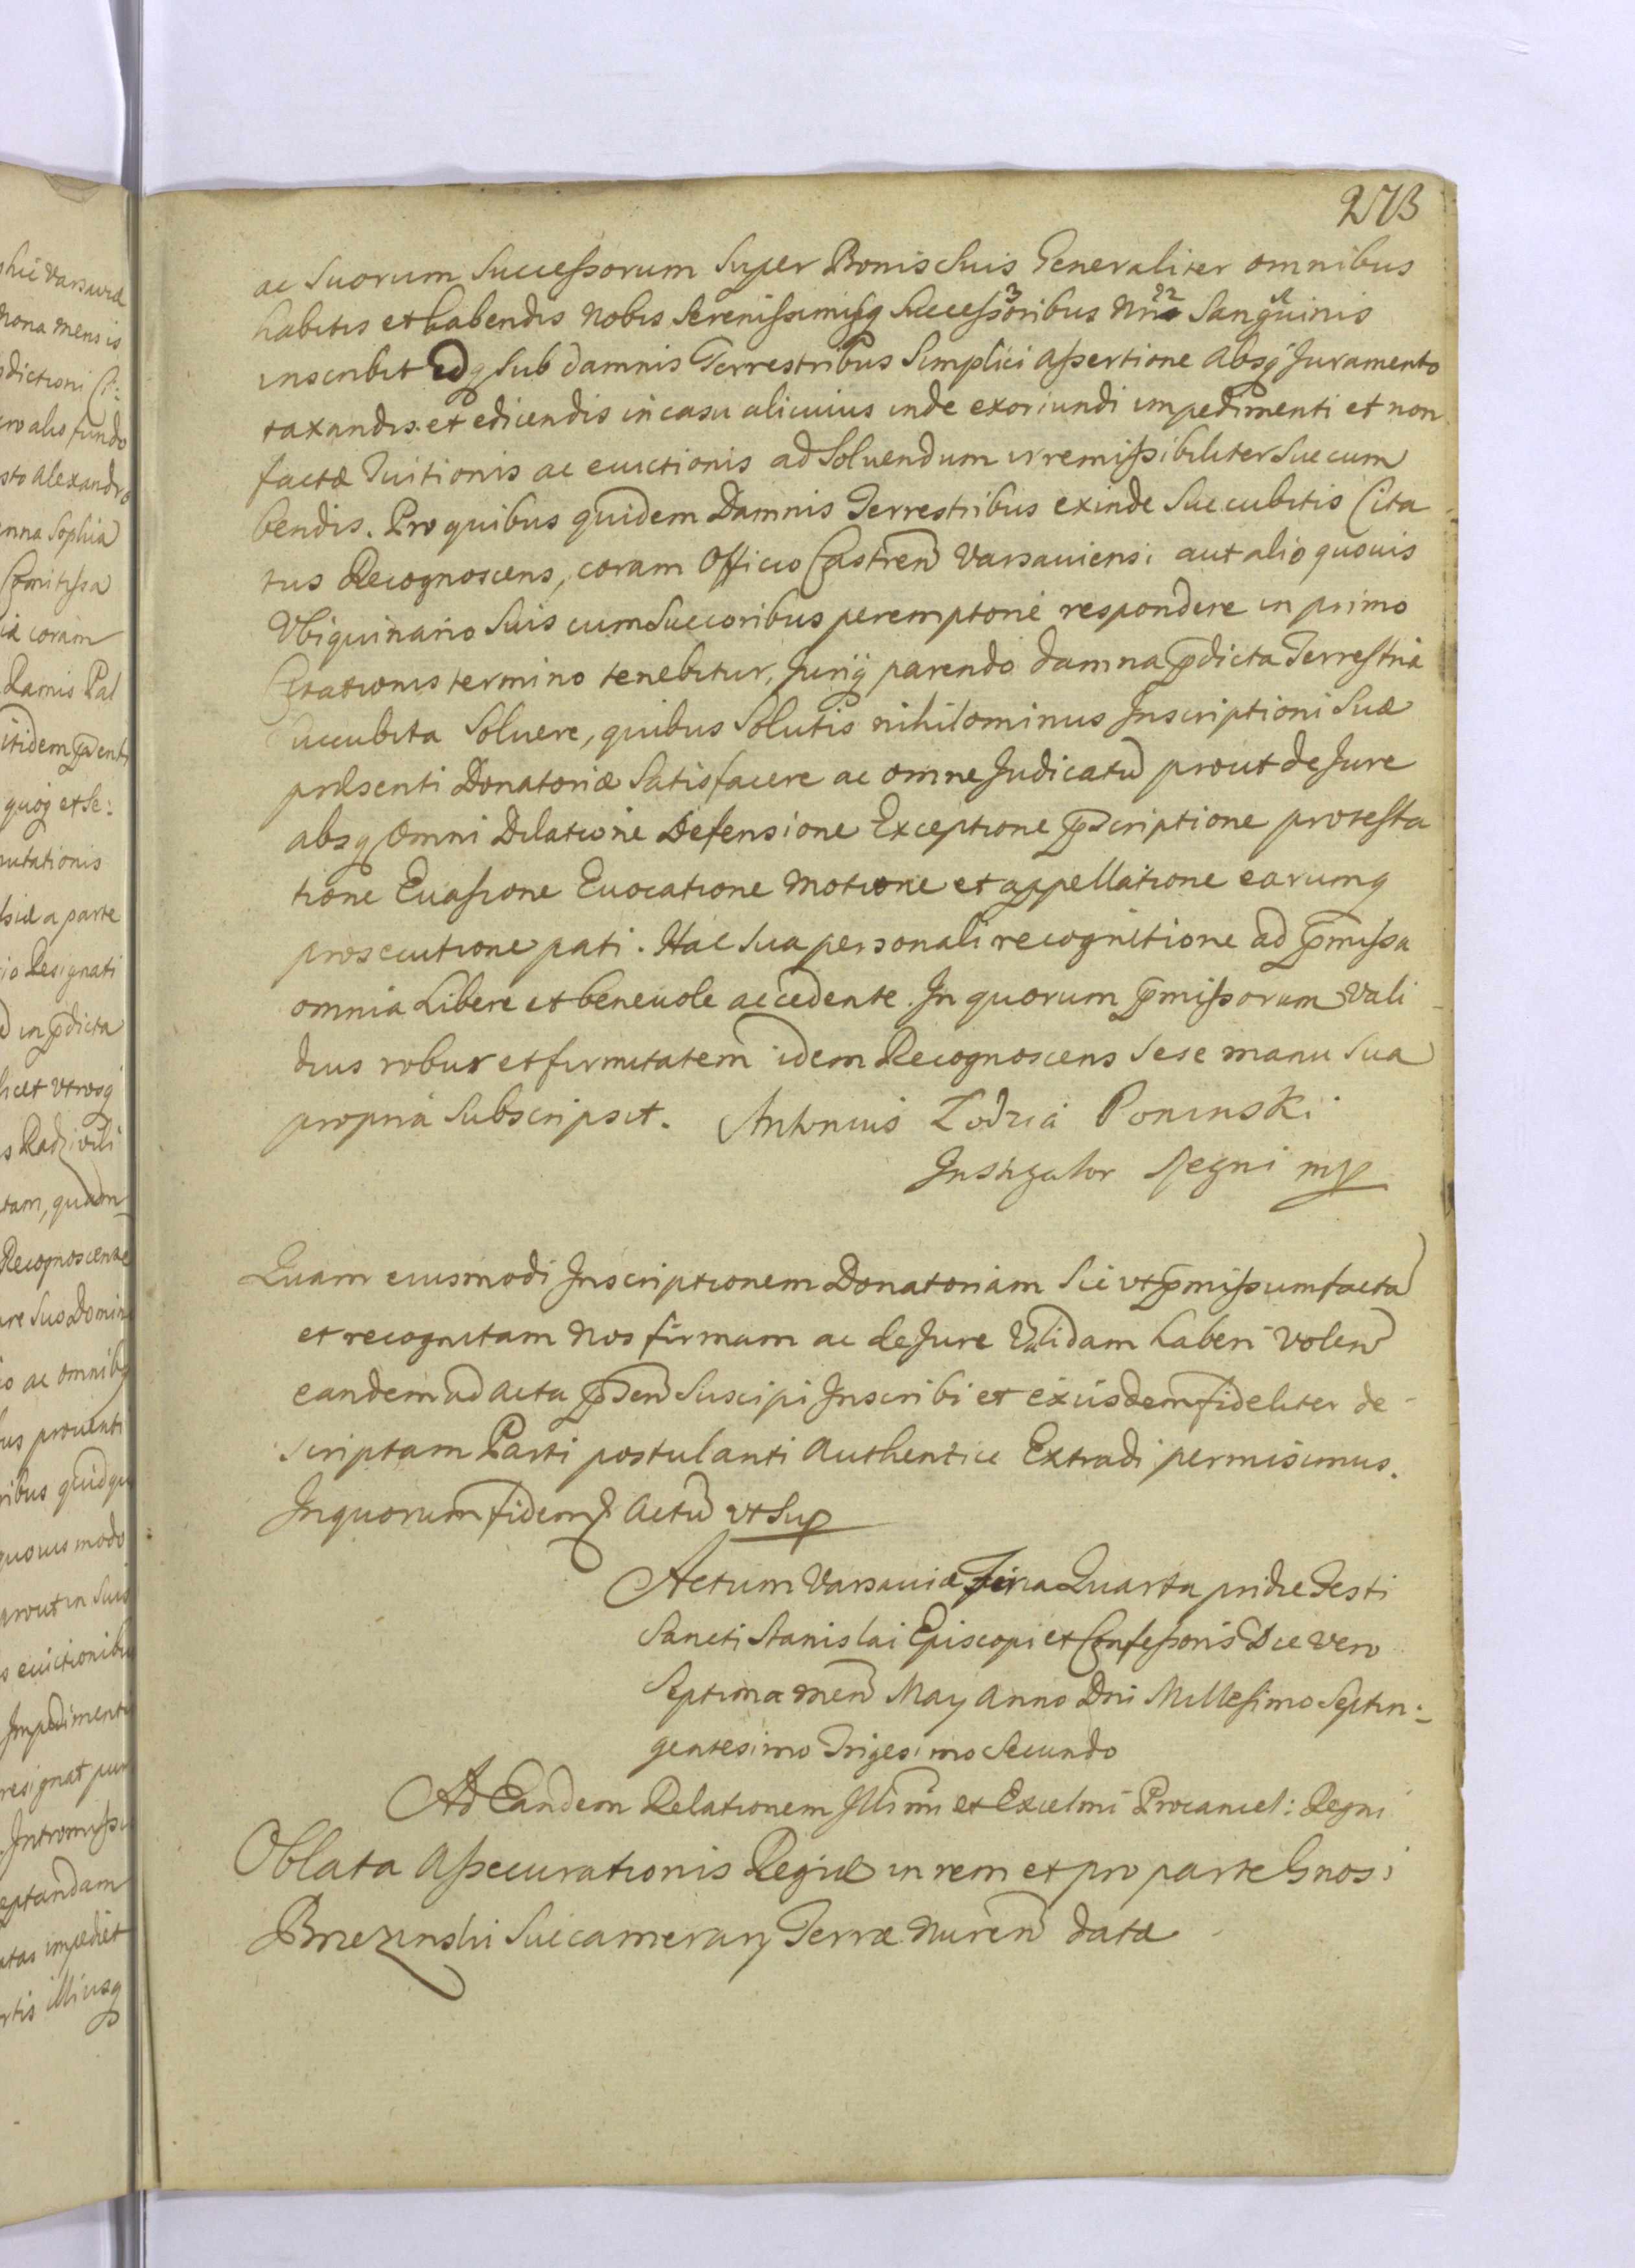 273
ac Suorum Successorum Super Bonis Suis Generaliter omnibus
habitis et habendis Nobis Serenissimisq Successoribus Nris Sanguinis
inscribit Idq sub damnis Terrestribus Simplici Assertione Absq Juramento
taxandis et edicendis in casu alicuius inde exoriundi impedimenti et non
factæ Tuitionis ac euictionis ad Soluendum irremissibiliter Succum
bendis. Pro quibus quidem Damnis Terrestribus exinde Succubitis Cita
tus Recognoscens, coram Officio Castren Varsauiensi aut alio quouis
Vbiquinario Suis cum Succoribus peremptorie respondere in primo
Citationis termino tenebitur, Juriq parendo damna pdicta Terrestria
Succubita Soluere, quibus Solutis nihilominus Inscriptioni Suæ
præsenti Donatoriæ Satisfacere ac omne Judicatu prout de Jure
absq Omni Dilatione Defensione Exceptione pscriptione protesta
tione Euasione Euocatione Motione et appellatione earumq
prosecutione pati. Hac Sua personali recognitione ad pmissa
omnia Libere et beneuole accedente. In quorum pmissorum Vali
dius robur et firmitatem idem Recognoscens Sese manu Sua
propria Subscripsit. Antonius Lodzia Poninski
Instigator Regni mp
Quam eiusmodi Inscriptionem Donatoriam Sic vt pmissum facta
et recognitam Nos firmam ac de Jure Validam haberi Volen
eandem ad Acta psen Suscipi Inscribi et exiisdem fideliter de
scriptam Parti postulanti Authentice Extradi permisimus.
In quorum fidem Actu vt Sup
Actum Varsauiæ Feria Quarta pridie Festi
Sancti Stanislai Episcopi et Confessoris Die Vero
Septima Men May Anno Dni Millesimo Septin:
gentesimo Trigesimo Secundo
Ad Eandem Relationem Illmi et Excelmi Procancel: Regni
Oblata Assecurationis Regiæ in rem et pro parte Gnosi
Brzezinski Succamerarij Terræ Nuren datæ